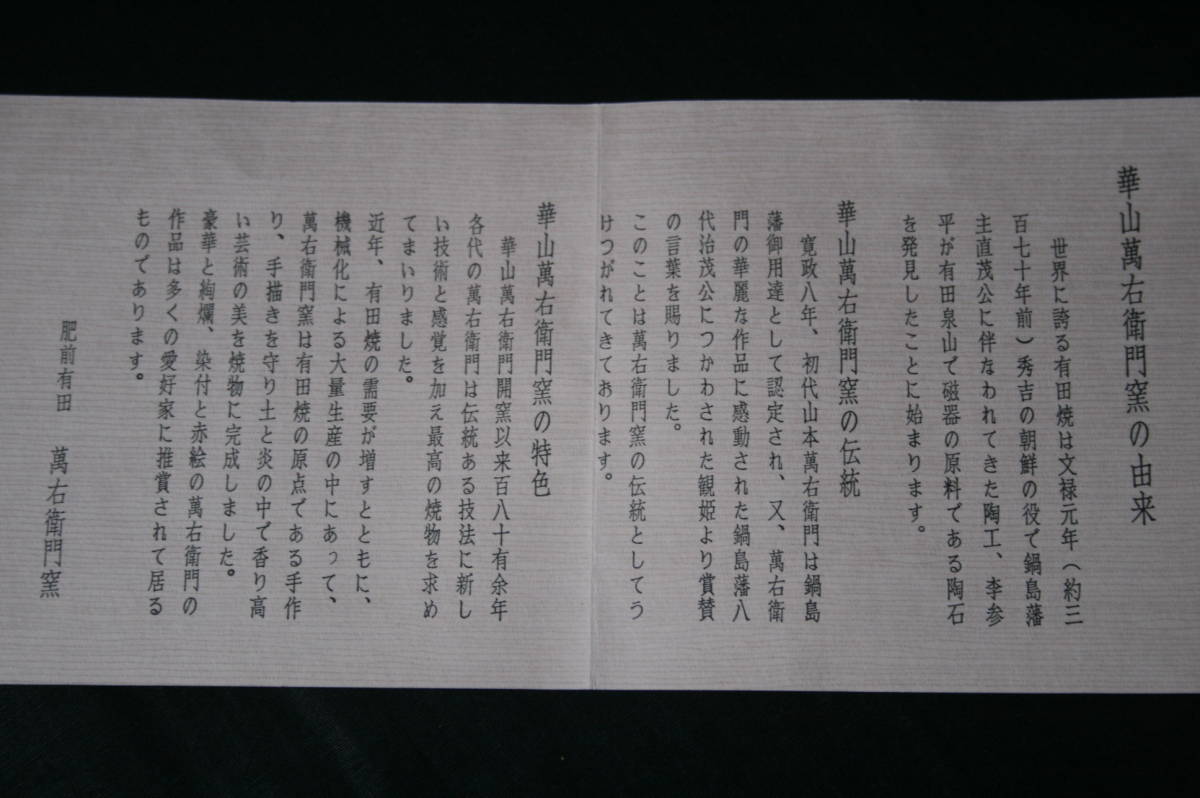 華山萬右衛門窯の由来
世界に誇る有田焼は文禄元年（約三
百七十年前）秀吉の朝鮮の役で鍋島藩
主直茂公に伴なわれてきた陶工、李参
平が有田泉山で磁器の原料である陶石
を発見したことに始まります。
華山萬右衛門窯の伝統
寛政八年、初代山本萬右衛門は鍋島
藩御用達として認定され、又、萬右衛
門の華麗な作品に感動された鍋島藩八
代治茂公につかわされた観姫より賞賛
の言葉を賜りました。
このことは萬右衛門窯の伝統としてう
けつがれてきております。
華山萬右衛門窯の特色
華山萬右衛門開窯以来百八十有余年
各代の萬右衛門は伝統ある技法に新し
い技術と感覚を加え最高の焼物を求め
てまいりました。
近年、有田焼の需要が増すとともに、
機械化による大量生産の中にあって、
萬右衛門窯は有田焼の原点である手作
り、手描きを守り土と炎の中で香り高
い芸術の美を焼物に完成しました。
豪華と絢爛、染付と赤絵の萬右衛門の
作品は多くの愛好家に推賞されて居る
ものであります。
肥前有田　萬右衛門窯